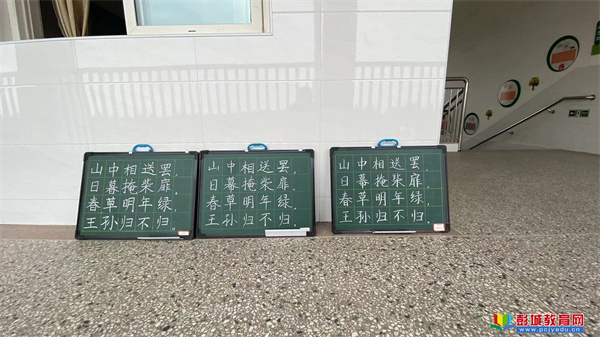 山中相送罢，
日暮掩柴扉。
春草明年绿，
王孙归不归。
山中相送罢，
日暮掩柴扉。
春草明年绿，
王孙归不归。
山中相送罢，
日暮掩柴扉。
春草明年绿，
王孙归不归。
彭城教育网
www.pcjyedu.com